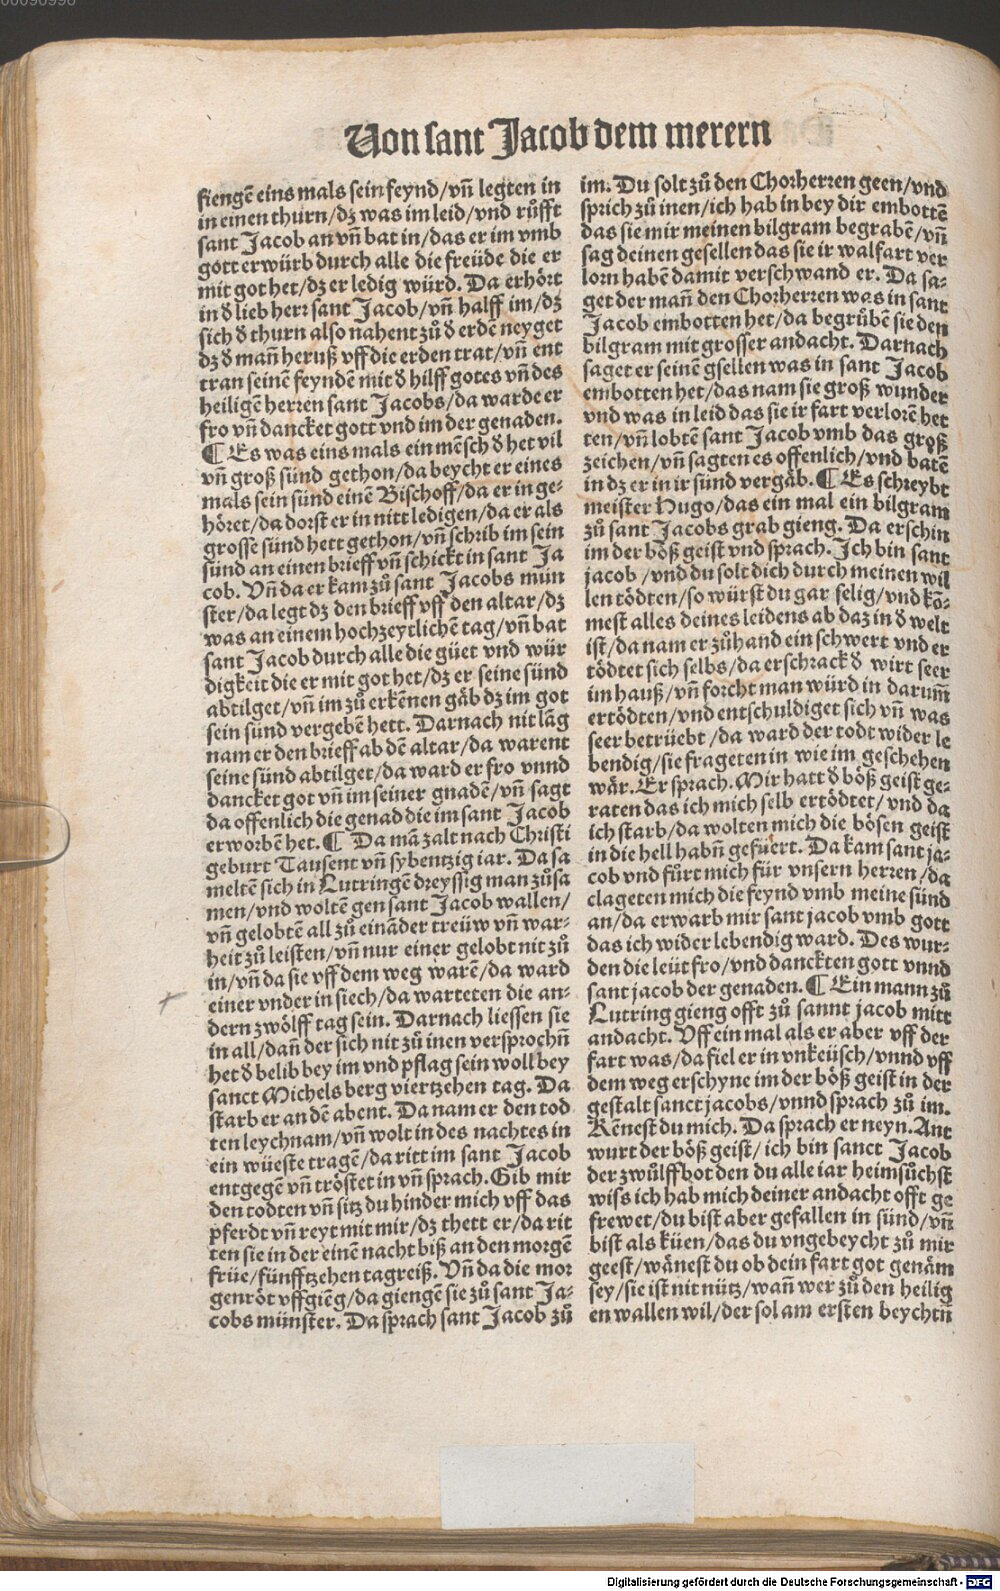 00090996
Von sant Jacob dem merern
fiengē eins mals sein feynd/vñ legten in
in einen thurn/dz was im leid/vnd růfft
sant Jacob an vñ bat in/das er im vmb
gott erwürb durch alle die freüde die er
mit got het/dz er ledig würd. Da erhört
in d lieb herr sant Jacob/vñ halff im/dz
sich d thurn also nahent zů d erdē neyget
dz d mañ heruß vff die erden trat/vñ ent
tran seinē feyndē mit d hilff gotes vñ des
heiligē herren sant Jacobs/da warde er
fro vñ dancket gott vnd im der genaden.
¶ Es was eins mals ein mēsch d het vil
vñ groß sünd gethon/da beycht er eines
mals sein sünd einē Bischoff/da er in ge⸗
höret/da dorst er in nitt ledigen/da er als
grosse sünd hett gethon/vñ schrib im sein
sünd an einen brieff vñ schickt in sant Ja
cob. Vñ da er kam zů sant Jacobs mün
ster/da legt dz den brieff vff den altar/dz
was an einem hochzeytlichē tag/vñ bat
sant Jacob durch alle die güet vnd wür
digkeit die er mit got het/dz er seine sünd
abtilget/vñ im zů erkēnen gäb dz im got
sein sünd vergebē hett. Darnach nit lāg
nam er den brieff ab dē altar/da warent
seine sünd abtilget/da ward er fro vnnd
dancket got vñ im seiner gnadē/vñ sagt
da offenlich die genad die im sant Jacob
erworbē het. ¶ Da mā zalt nach Christi
geburt Tausent vñ sybentzig iar. Da sa
meltē sich in Lutringē dreyssig man zůsa
men/vnd woltē gen sant Jacob wallen/
vñ gelobtē all zů eināder treüw vñ war⸗
heit zů leisten/vñ nur einer gelobt nit zů
in/vñ da sie vff dem weg warē/da ward
einer vnder in siech/da warteten die an⸗
dern zwölff tag sein. Darnach liessen sie
in all/dañ der sich nit zů inen versprochñ
het d belib bey im vnd pflag sein woll bey
sanct Michels berg viertzehen tag. Da
starb er an dē abent. Da nam er den tod
ten leychnam/vñ wolt in des nachtes in
ein wüeste tragē/da ritt im sant Jacob
entgegē vñ tröstet in vñ sprach. Gib mir
den todten vñ sitz du hinder mich vff das
pferdt vñ reyt mit mir/dz thett er/da rit
ten sie in der einē nacht biß an den morgē
früe/fünfftzehen tagreiß. Vñ da die mor
genröt vffgiēg/da giengē sie zů sant Ja⸗
cobs münster. Da sprach sant Jacob zů
im. Du solt zů den Chorherren geen/vnd
sprich zů inen/ich hab in bey dir embottē
das sie mir meinen bilgram begrabē/vñ
sag deinen gesellen das sie ir walfart ver
lorn habē damit verschwand er. Da sa⸗
get der mañ den Chorherren was in sant
Jacob embotten het/da begrůbē sie den
bilgram mit grosser andacht. Darnach
saget er seinē gsellen was in sant Jacob
embotten het/das nam sie groß wunder
vnd was in leid das sie ir fart verlorē het
ten/vñ lobtē sant Jacob vmb das groß
zeichen/vñ sagten es offenlich/vnd batē
in dz er in ir sünd vergäb. ¶ Es schreybt
meister Hugo/das ein mal ein bilgram
zů sant Jacobs grab gieng. Da erschin
im der böß geist vnd sprach. Ich bin sant
jacob/vnd du solt dich durch meinen wil
len tödten/so würst du gar selig/vnd kō⸗
mest alles deines leidens ab daz in d welt
ist/da nam er zůhand ein schwert vnd er
tödtet sich selbs/da erschrack d wirt seer
im hauß/vñ forcht man würd in darum̄
ertödten/vnd entschuldiget sich vñ was
seer betrüebt/da ward der todt wider le
bendig/sie frageten in wie im geschehen
wär. Er sprach. Mir hatt d böß geist ge⸗
raten das ich mich selb ertödtet/vnd da
ich starb/da wolten mich die bösen geist
in die hell habñ gefüert. Da kam sant ja⸗
cob vnd fůrt mich für vnsern herren/da
clageten mich die feynd vmb meine sünd
an/da erwarb mir sant jacob vmb gott
das ich wider lebendig ward. Des wur⸗
den die leüt fro/vnd danckten gott vnnd
sant jacob der genaden. ¶ Ein mann zů
Lutring gieng offt zů sannt jacob mitt
andacht. Vff ein mal als er aber vff der
fart was/da fiel er in vnkeüsch/vnnd vff
dem weg erschyne im der böß geist in der
gestalt sanct jacobs/vnnd sprach zů im.
Kēnest du mich. Da sprach er neyn. Ant
wurt der böß geist/ich bin sanct Jacob
der zwůlffbot den du alle iar heimsůchst
wiss ich hab mich deiner andacht offt ge
frewet/du bist aber gefallen in sünd/vñ
bist als küen/das du vngebeycht zů mir
geest/wänest du ob dein fart got genäm
sey/sie ist nit nütz/wañ wer zů den heilig
en wallen wil/der sol am ersten beychtñ
Digitalisierung gefördert durch die Deutsche Forschungsgemeinschaft - DFG